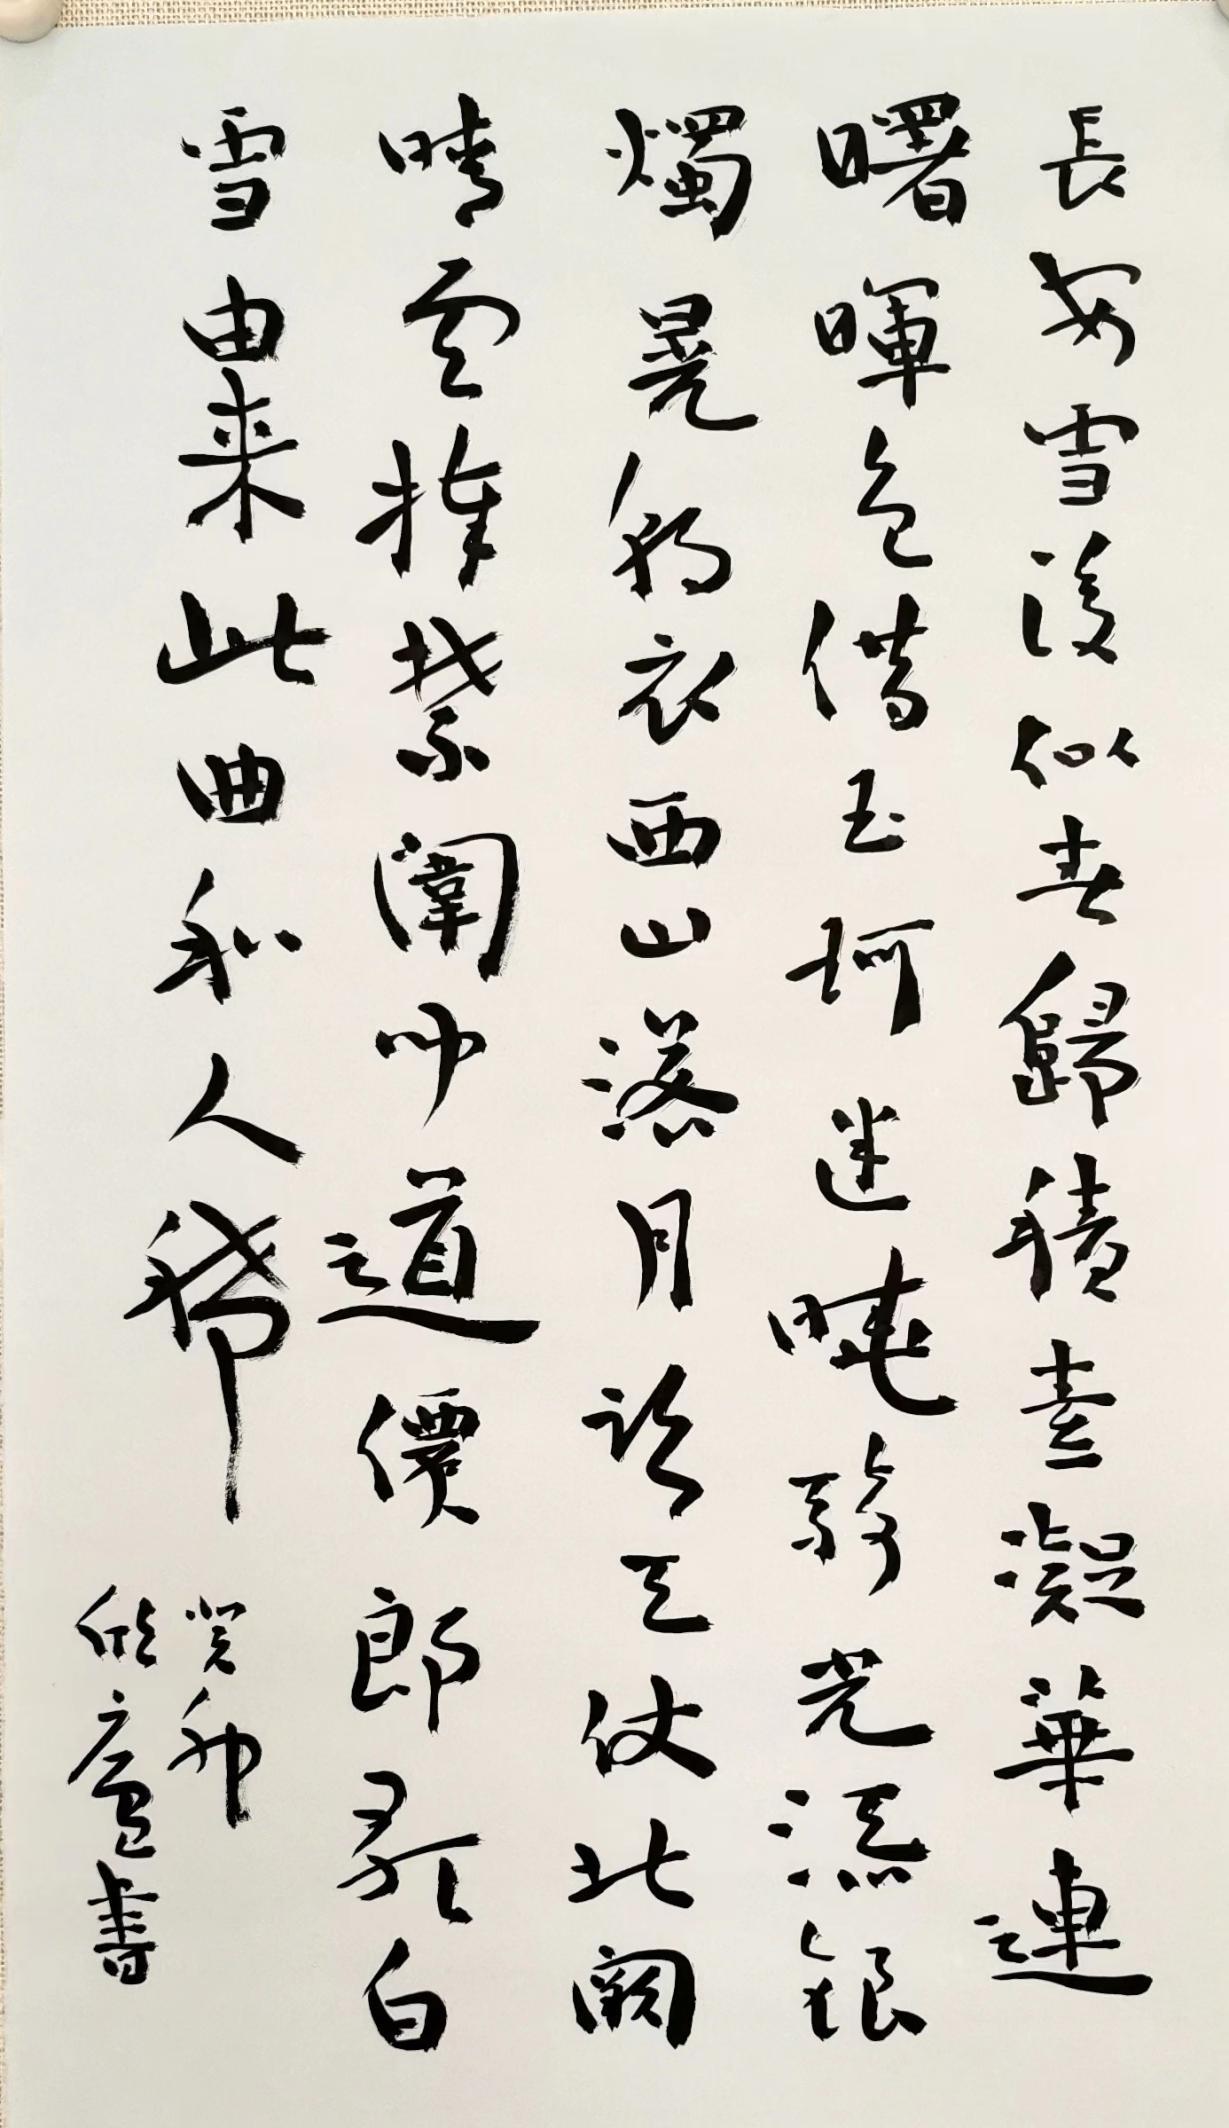 長安雪後似春歸積素凝華連
曙暉色借玉珂迷曉騎光添銀
燭晃朝衣西山落月臨天仗北闕
晴雲捧禁闈聞道僊郎歌白
雪由来此曲和人稀
癸卯
欣廬書